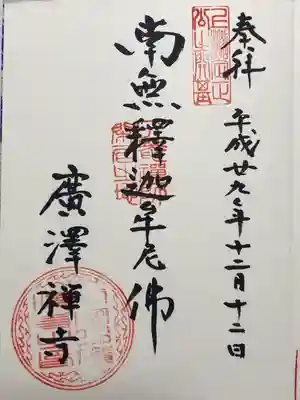 奉拝 平成廿九年十二月十二日
南無釋迦牟尼佛
廣澤禅寺